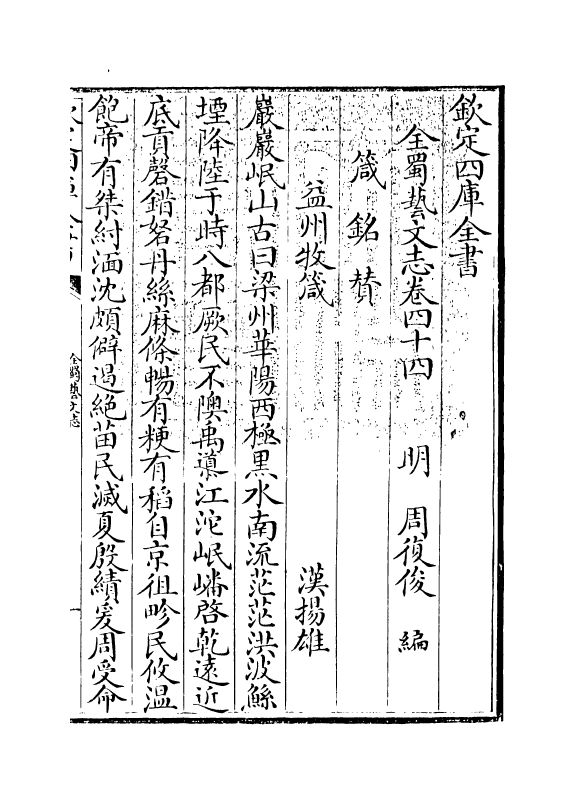 欽定四庫全書
全蜀藝文志卷四十四 明 周復俊 編
箴 銘 賛
益州牧箴 漢揚雄
巖巖岷山古曰梁州華陽西極黒水南流茫茫洪波鯀
堙降陸于時八都厥民不隩禹導江沱岷嶓啓乾遠近
底貢磬錯砮丹絲麻條暢有粳有稻自京徂畛民攸温
飽帝有桀紂湎沈頗僻遏絶苗民滅夏殷績爰周受命
全蜀藝文志
一